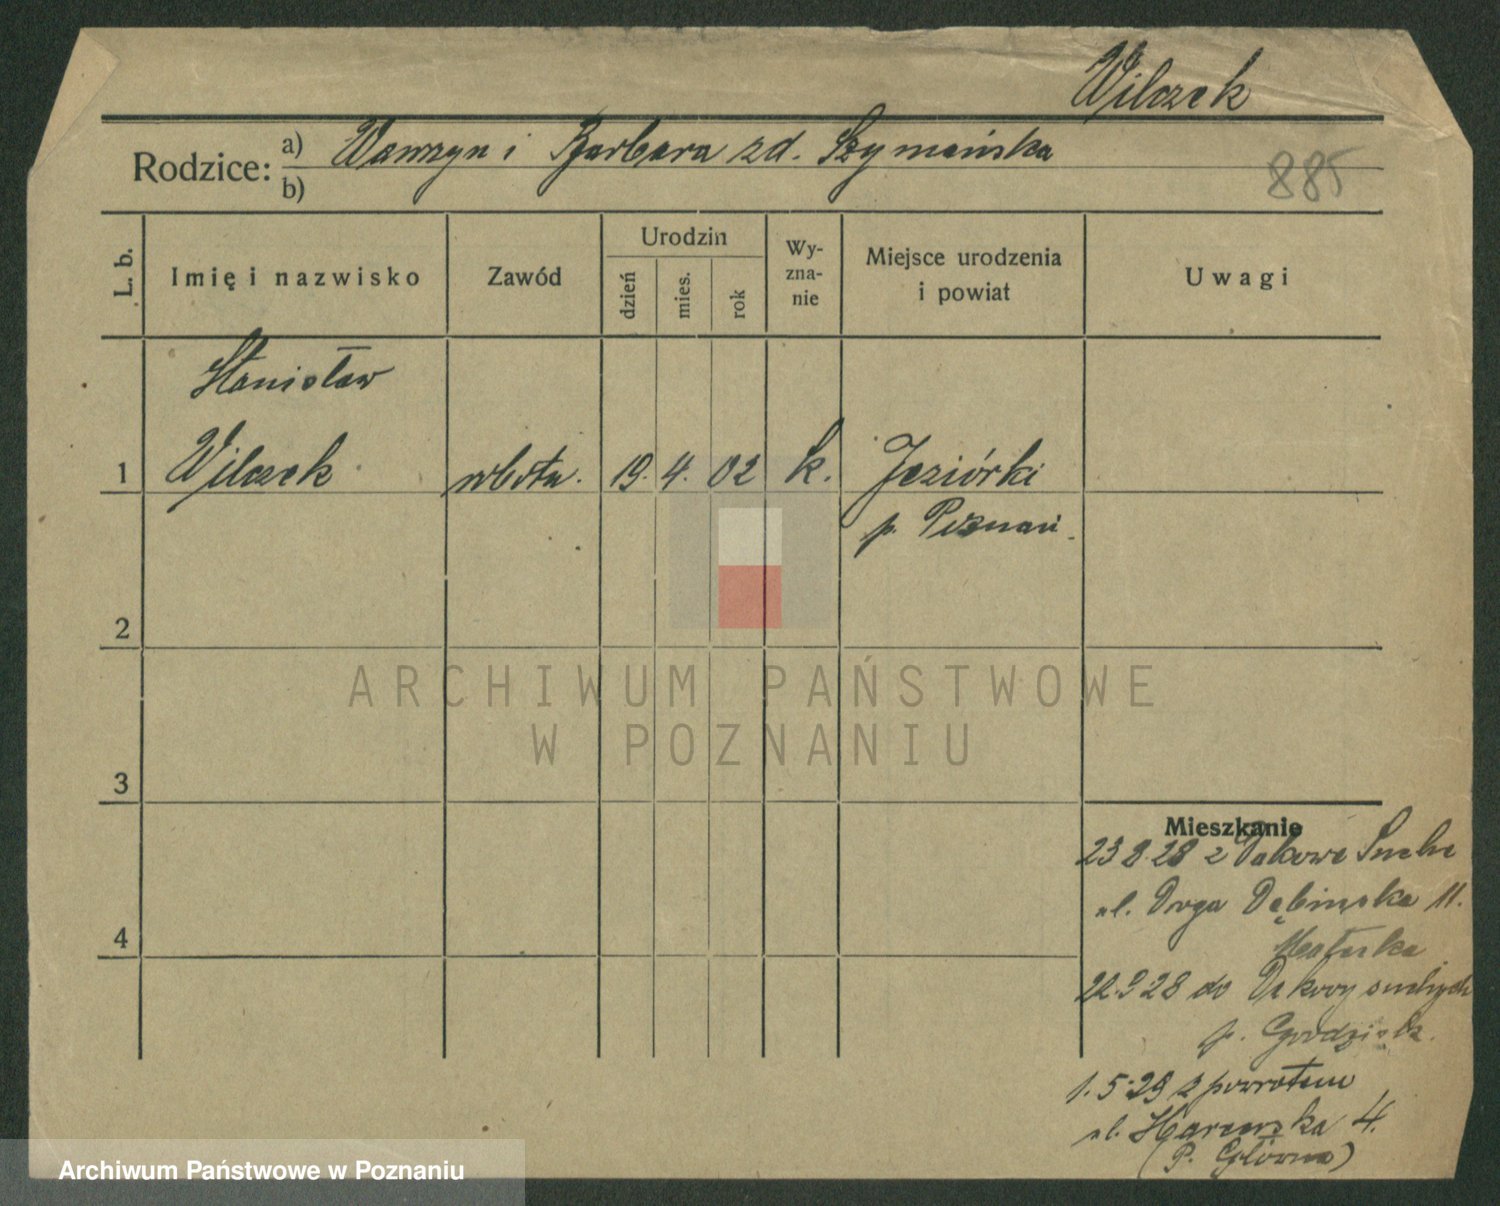 Wilczek
Rodzice:
a) Wawrzyn i Barbara zd. Szymańska
b)
885
L. b.
Imię i nazwisko
Zawód
Urodzin
dzień
mies.
rok
Wy-
zna-
nie
Miejsce urodzenia
i powiat
Uwagi
Stanisław
1 Wilczek robotn. 19. 4. 02 k. Jeziórki
p. Poznań
2
3
4
ARCHIWUM PAŃSTWOWE
W POZNANIU
Mieszkanie
23 8 28 z Dakowe Suche
ul. Droga Dębińska 11.
Matuska
22.9 28 do Dakowy suchych
p. Grodzisk.
1. 5 29 z powrotem
ul. Harcerska 4.
(P. Główna)
Archiwum Państwowe w Poznaniu